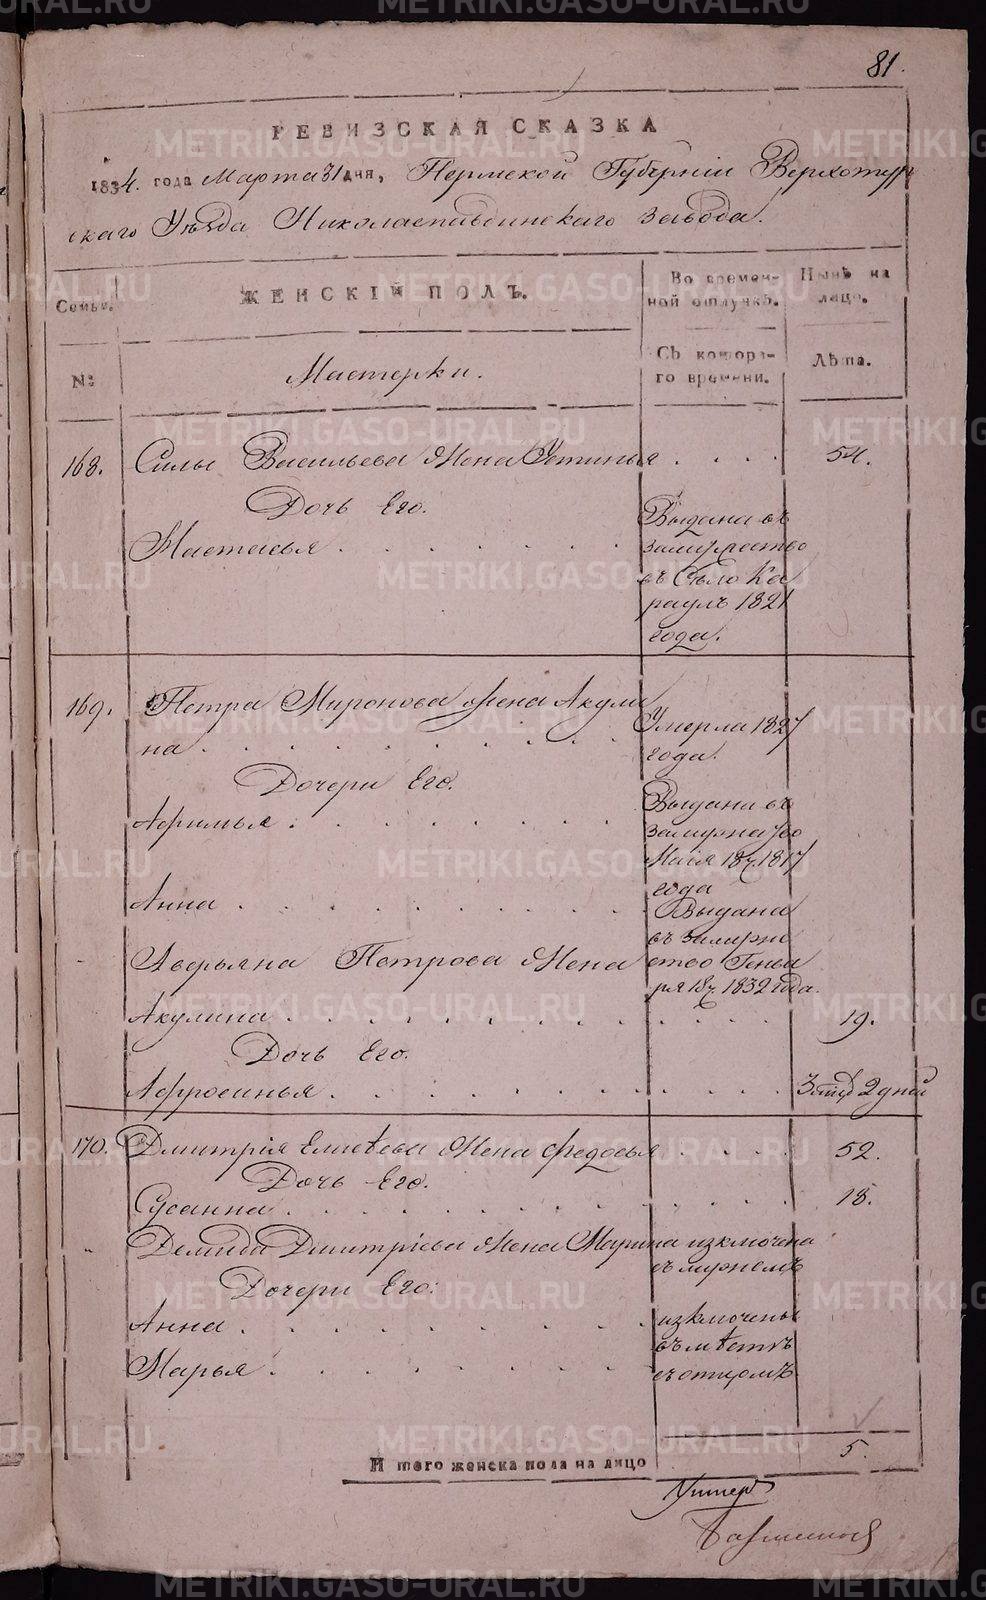 81.
РЕВИЗСКАЯ СКАЗКА
1834. года Марта 31 дня, Пермской Губерніи Верхотур
скаго Уѣзда Николаепавдинскаго завода.
Семьи.
ЖЕНСКІЙ ПОЛЪ.
Во времен-
ной отлучкѣ.
Нынѣ на
лицо.
№
Мастерки.
Съ котора-
го времени.
Лѣта.
168. Силы Васильева Жена Устинья . . . . 54.
Дочь Его.
Настасья . . . . . . .
Выдана въ
замужество
въ Село Ка
раулъ 1821
года.
169. Петра Миронова Жена Акули
на . . . . . . . . . .
Умерла 1827
года.
Дочери Его.
Афимья . . . . . . . .
Выдана въ
Маія 18ч. 1817
года
Анна . . . . . . . . .
Выдана
въ замуже
ство Генва
ря 18ч. 1832 года.
Аверьяна Петрова Жена
Акулина . . . . . . . . . . . . . 19.
Дочь Его.
Афросинья . . . . . . . . . . . 3 мцд 2 дней
170. Дмитрія Елисѣева Жена Федосья . . . . 52.
Дочь Его.
Сусанна . . . . . . . . . . . . . 18.
Демида Дмитріева Жена Марина изключена
съ мужемъ
Дочери Его:
Анна . . . . . . . . .
Марья . . . . . . . .
изключены
вмѣстѣ
съ отцомъ
И того женска пола на лицо 5.